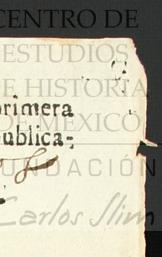 CENTRO DE
ESTUDIOS
DE HISTORIA
primera
DE MÉXICO
publica-
FUNDACIÓN
Carlos Slim